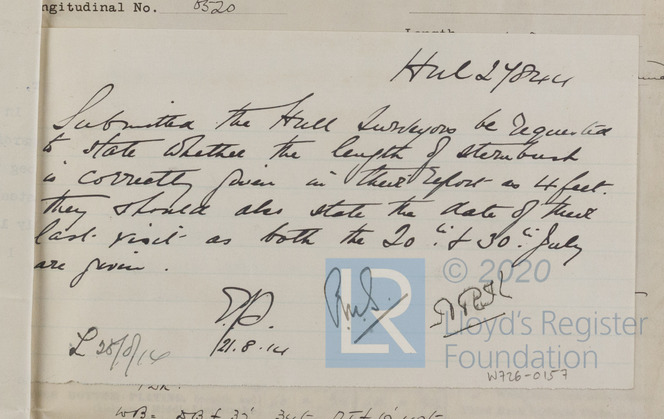 ngitudinal No. 8520
Hul 27844
Submitted the Hull Surveyors be requested
to state whether the length of sternbush
is correctly given in their report as 4 feet.
they should also state the date of their
last visit as both the 20th & 30th July
are given.
E.P.
21.8.14
P.M.S.
L 28/8/14
LR
© 2020
Lloyd's Register
Foundation
W726-0157